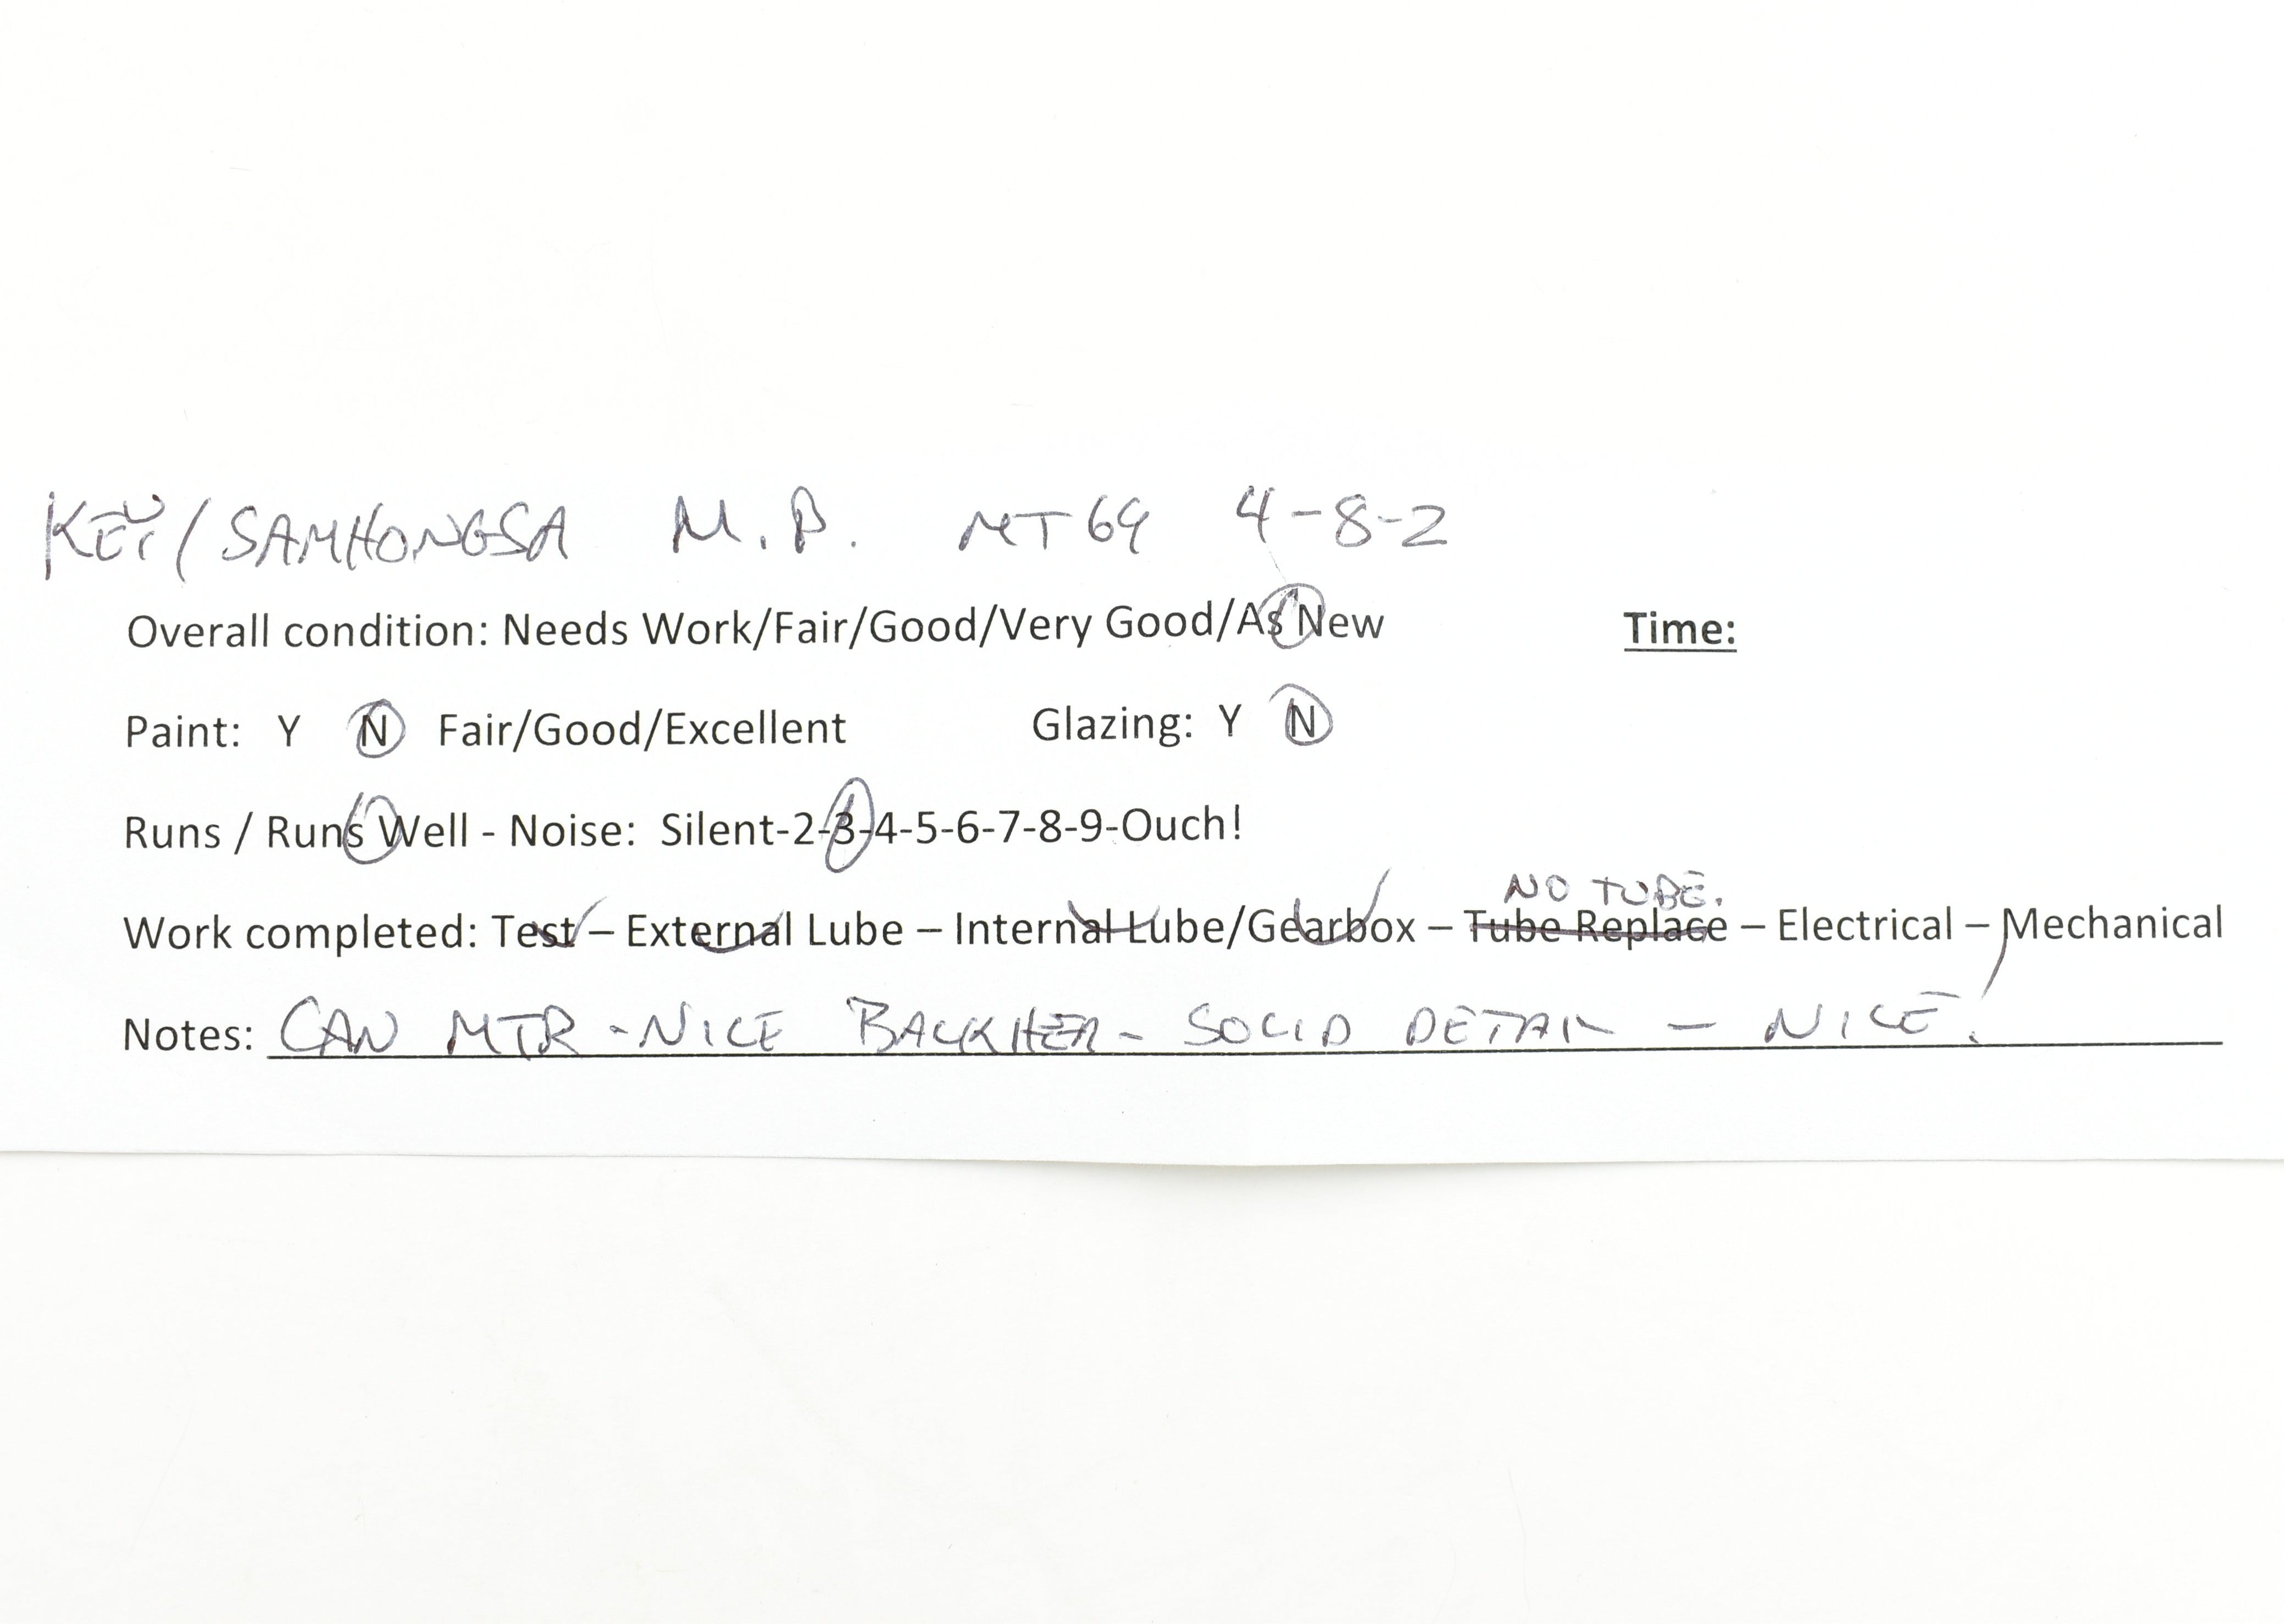 KEY/SAMHONGSA M.P. MT69 4-8-2
Overall condition: Needs Work/Fair/Good/Very Good/As New Time:
Paint: Y N Fair/Good/Excellent Glazing: Y N
Runs / Runs Well - Noise: Silent-2-3-4-5-6-7-8-9-Ouch!
NO TUBE.
Work completed: Test – External Lube – Internal Lube/Gearbox – Tube Replace – Electrical – Mechanical
Notes: CAN MTR - NICE BACKHEAD - SOLID DETAIL - NICE!